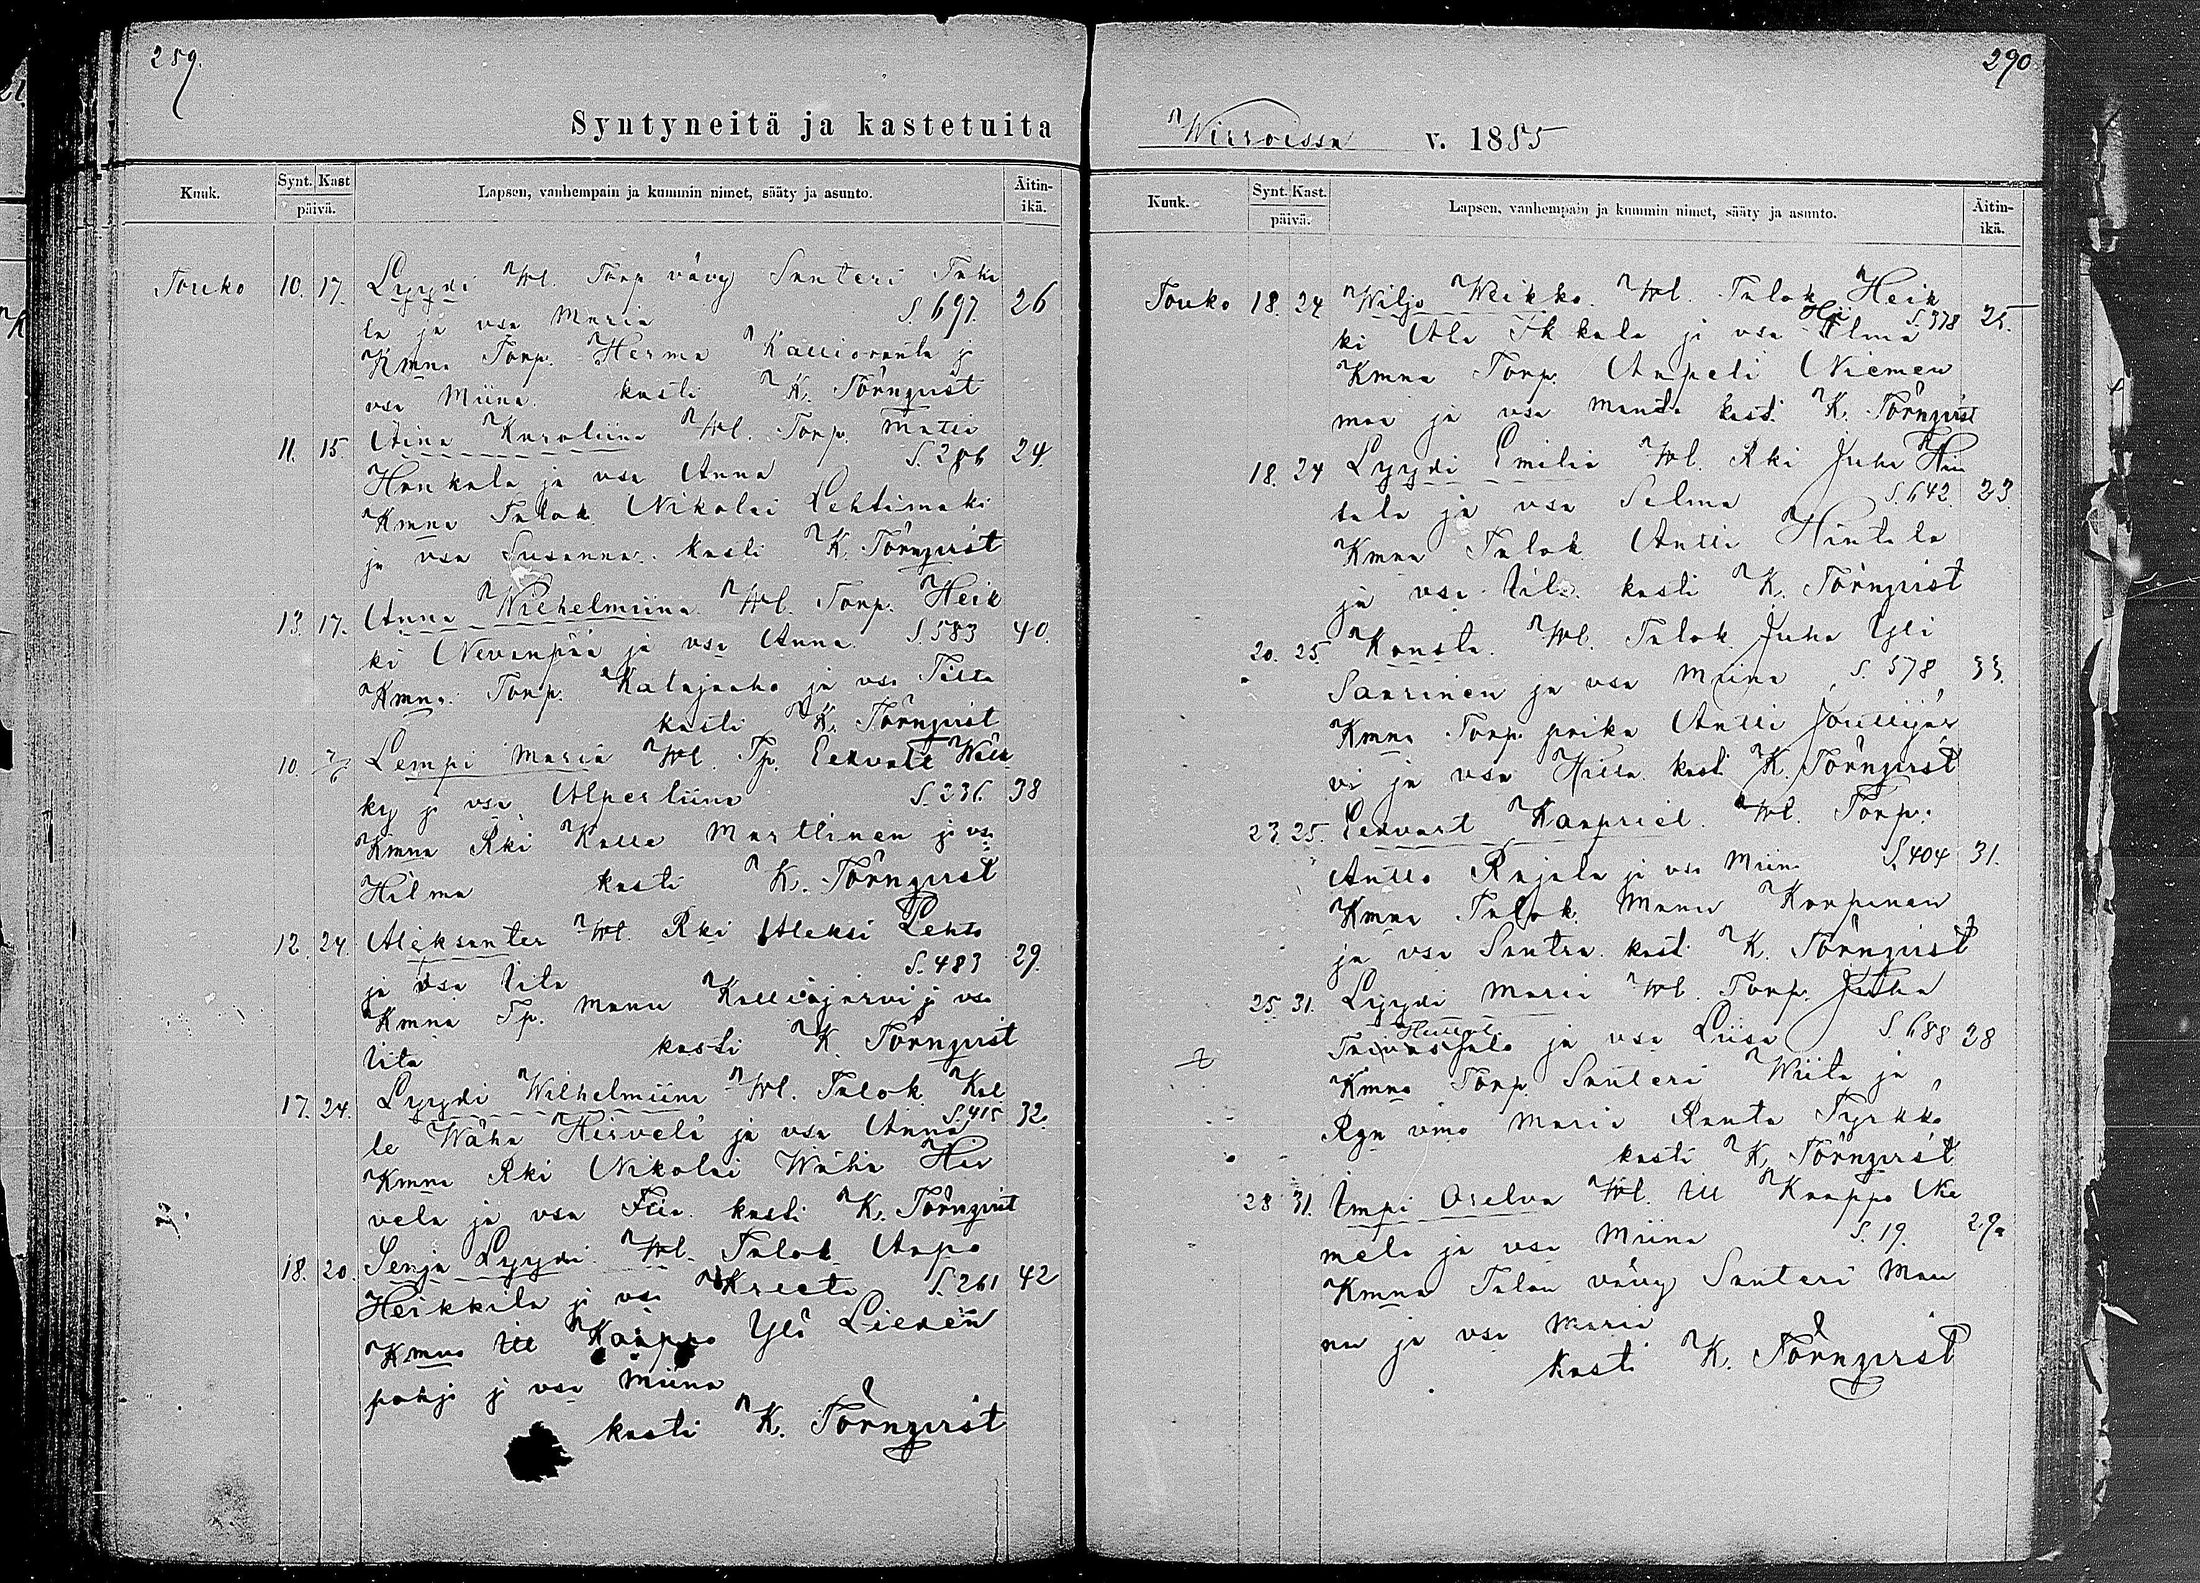 289.
Syntyneitä ja kastetuita
Kuuk.
Synt. Kast
päivä.
Lapsen, vanhempain ja kummin nimet, sääty ja asunto.
Äitin-
ikä.
Touko 10. 17. Lyydi Wl. Torp vävy Santeri Tuki
la ja vsa Maria S. 697. 26
Kmna Torp. Herma Kallioranta j
vsa Miina. kasti K. Törnqvist
11. 15. Aina Karoliina Wl. Torp. Matti
Honkala ja vsa Anna S. 206 24.
Kmna Talok. Nikolai Lehtimäki
ja vsa Susanna. kasti K. Törnqvist
13. 17. Anna Wilhelmiina Wl. Torp. Heik
ki Nevanpää ja vsa Anna S. 583 40.
Kmna. Torp. Katajaaho ja vsa Tilta
kasti K. Törnqvist
10. 7/6 Lempi Maria Wl. Tp. Eetvartt
ky j vsa Alpertiina S. 236. 38
Kmna Rki Kalle Marttinen j vsa
Hilma kasti K. Törnqvist
12. 24. Aleksanter Wl. Rki Aleksi Lehto
ja vsa Iita S. 483 29.
Kmna Tp. Manu Kalliojärvi j vsa
Iita kasti K. Törnqvist
17. 24. Lyydi Wilhelmiina Wl. Talok. Kal
le Wähä Hirvelä ja vsa Anna S. 415 32.
Kmna Rki Nikolai Wähä Hir
velä ja vsa Fiia. kasti K. Törnqvist
18. 20. Senja Lyydi Wl. Talok. Aapo
Heikkilä j vsa Kreeta S. 261 42
Kmna Itl Kaappo Yli Lieden
pohja j vsa Miina
kasti K. Törnqvist
290
Wirroissa v. 1885
Kuuk.
Synt. Kast.
päivä.
Lapsen, vanhempain ja kummin nimet, sääty ja asunto.
Äitin-
ikä.
Touko 18. 24 Wiljo Weikko. Wl. Talok Heik
ki Ala Ikkala ja vsa Hilma S. 378 25.
Kmna Torp. Aapeli Niemen
maa ja vsa Manda kasti K. Törnqvist
18. 24 Lyydi Emilia Wl. Rki Juha Hin
tala ja vsa Selma S. 642. 23.
Kmna Talok Antti Hintala
ja vsa Iita kasti K. Törnqvist
20. 25. Konsta. Wl. Talok. Juha Yli
Saarinen ja vsa Miina S. 578 33.
Kmna Torp. poika Antti Jouttijär
vi ja vsa Hilla kasti K. Törnqvist
23. 25. Eetvart Kaapriel. Wl. Torp.
Antto Rajala ja vsa Miina S. 404 31.
Kmna Talok. Manu Koopinen
ja vsa Santra kasti K. Törnqvist
25. 31. Lyydi Maria Wl. Torp. Juha
ja vsa Liisa S. 688 28
Kmna Torp. Santeri Wiita ja
Rgn vmo Maria Ranta Tyrkkö
kasti K. Törnqvist
28 31. Impi Orelva Wl. Itl Kaappo Ne
melä ja vsa Miina S. 19. 29
Kmna Talon vävy Santeri Man
nu ja vsa Maria
kasti K. Törnqvist